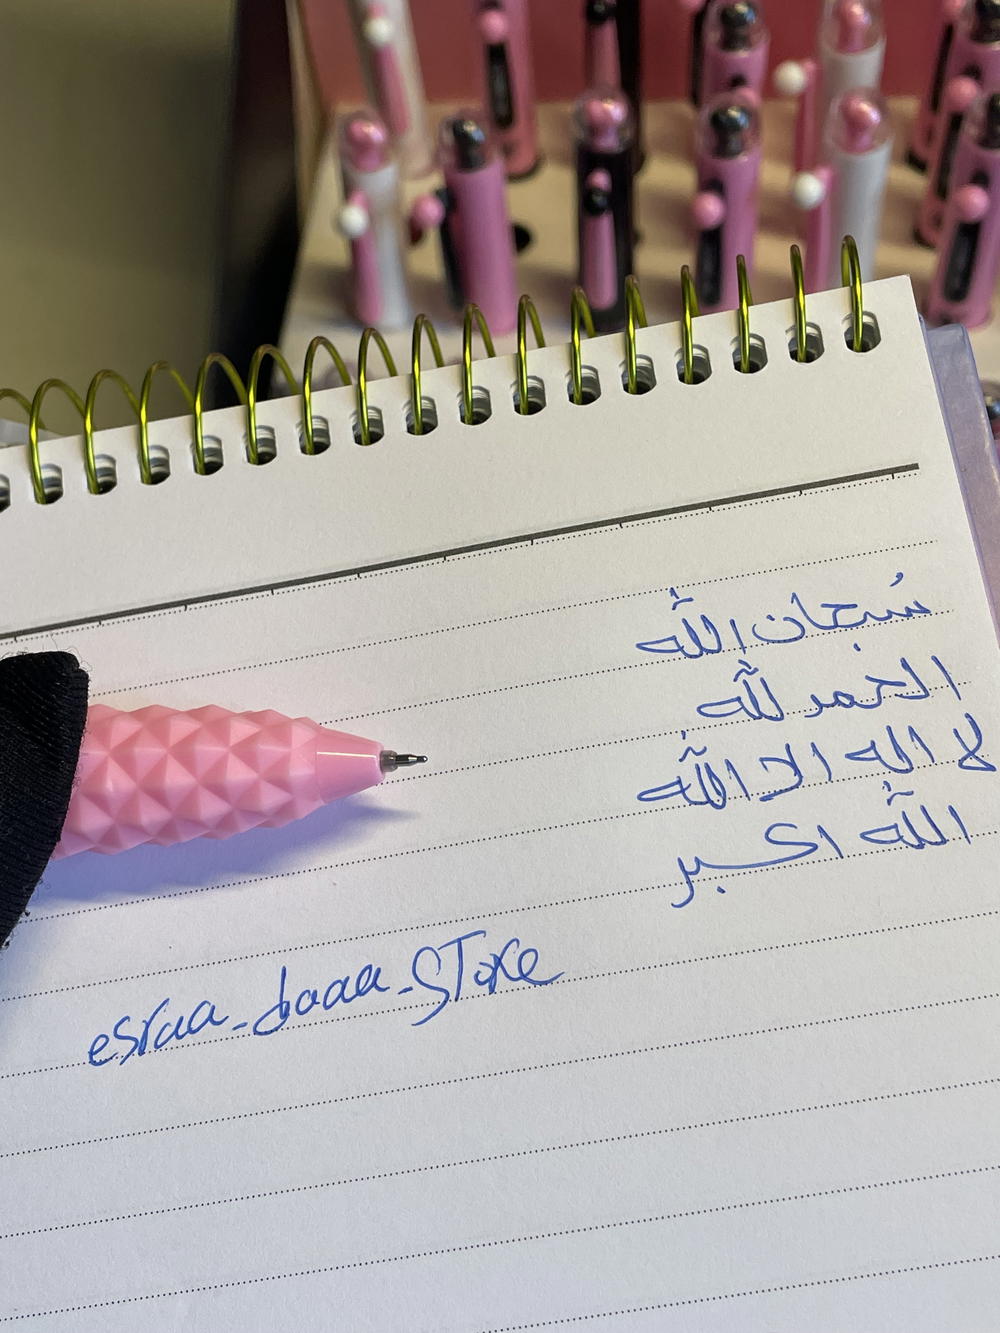 سُبحان الله
الحمد لله
لا اله الا الله
الله اكبر
esraa_doaa_STore